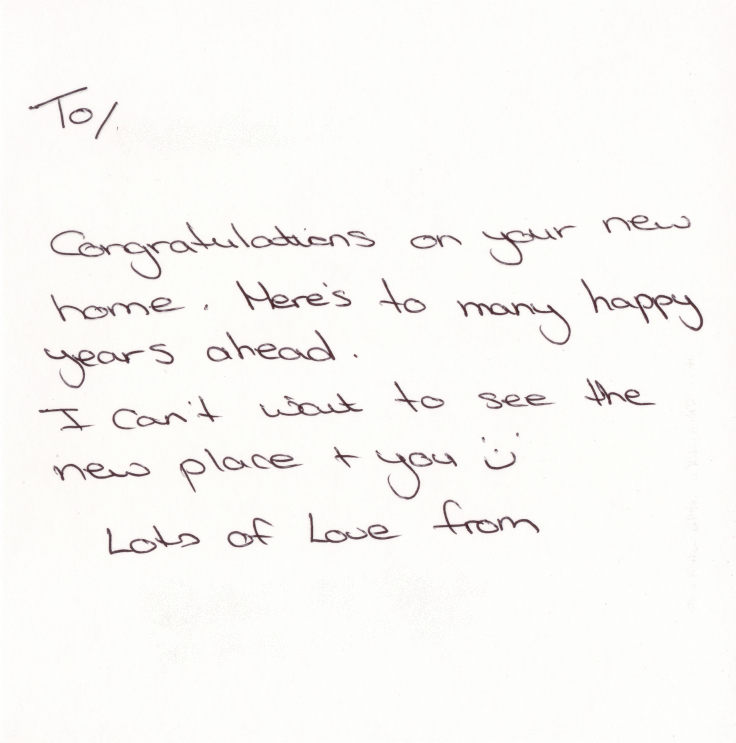 To/
Congratulations on your new
home. Here's to many happy
years ahead.
I can't wait to see the
new place + you ü
Lots of Love from